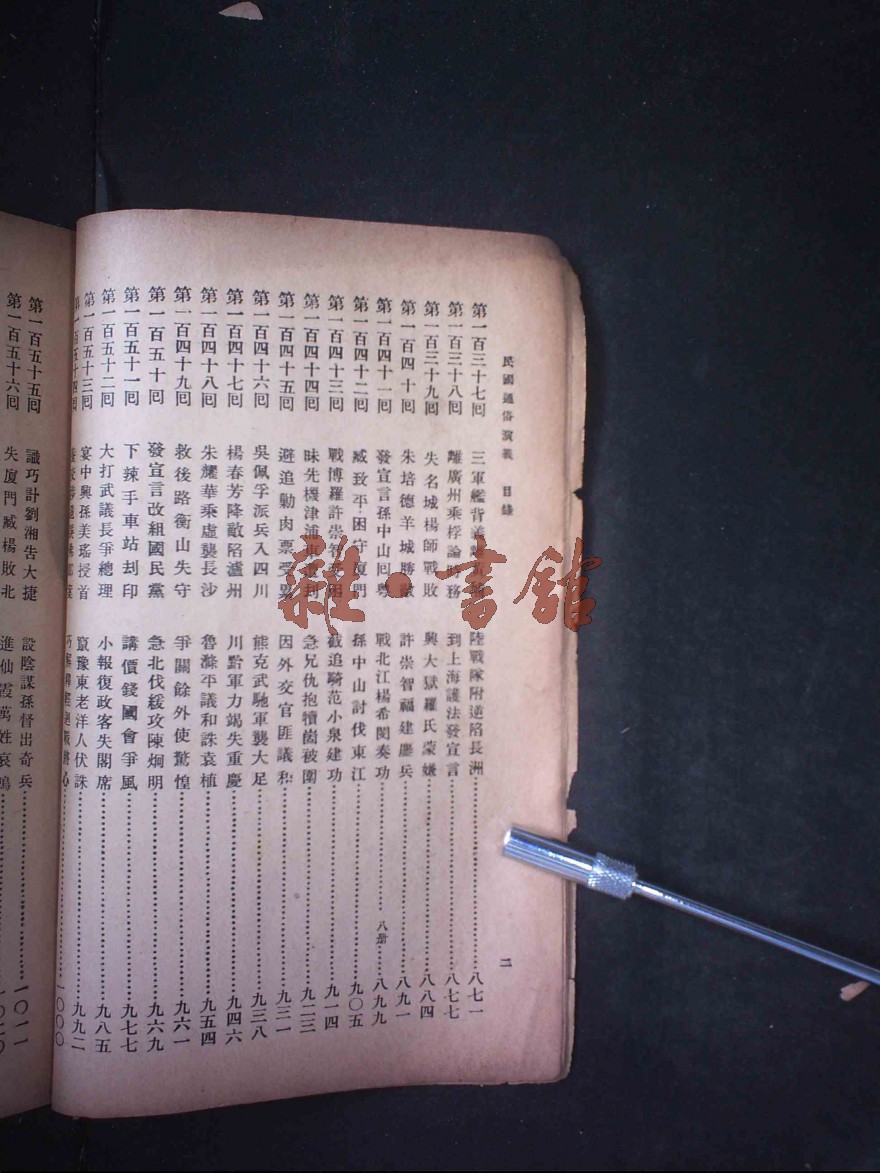 民國通俗演義 目錄
二
第一百三十七回 三軍艦背義 陸戰隊附逆陷長洲 八七一
第一百三十八回 離廣州乘桴論時務 到上海護法發宣言 八七七
第一百三十九回 失名城楊師戰敗 興大獄羅氏蒙嫌 八八四
第一百四十回 朱培德羊城勝敵 許崇智福建鏖兵 八九一
第一百四十一回 發宣言孫中山回粵 戰北江楊希閔奏功 八册 八九九
第一百四十二回 臧致平困守廈門 孫中山討伐東江 九〇五
第一百四十三回 戰博羅許崇智受困 截追騎范小泉建功 九一四
第一百四十四回 昧先機津浦車被刦 急兄仇抱犢崮被圍 九二三
第一百四十五回 避追勦肉票受累 因外交官匪議和 九三一
第一百四十六回 吳佩孚派兵入四川 熊克武馳軍襲大足 九三八
第一百四十七回 楊春芳降敵陷瀘州 川黔軍力竭失重慶 九四六
第一百四十八回 朱耀華乘虛襲長沙 魯滌平議和誅袁植 九五四
第一百四十九回 救後路衡山失守 爭關餘外使驚惶 九六一
第一百五十回 發宣言改組國民黨 急北伐緩攻陳炯明 九六九
第一百五十一回 下辣手車站刦印 講價錢國會爭風 九七七
第一百五十二回 大打武議長爭總理 小報復政客失閣席 九八五
第一百五十三回 宴中興孫美瑤授首 竄豫東老洋人伏誅 九九二
第一百五十四回 一〇〇〇
第一百五十五回 識巧計劉湘告大捷 設陰謀孫督出奇兵 一〇一一
第一百五十六回 失廈門臧楊敗北 進仙霞萬姓哀鳴 一〇二〇
雜·書館